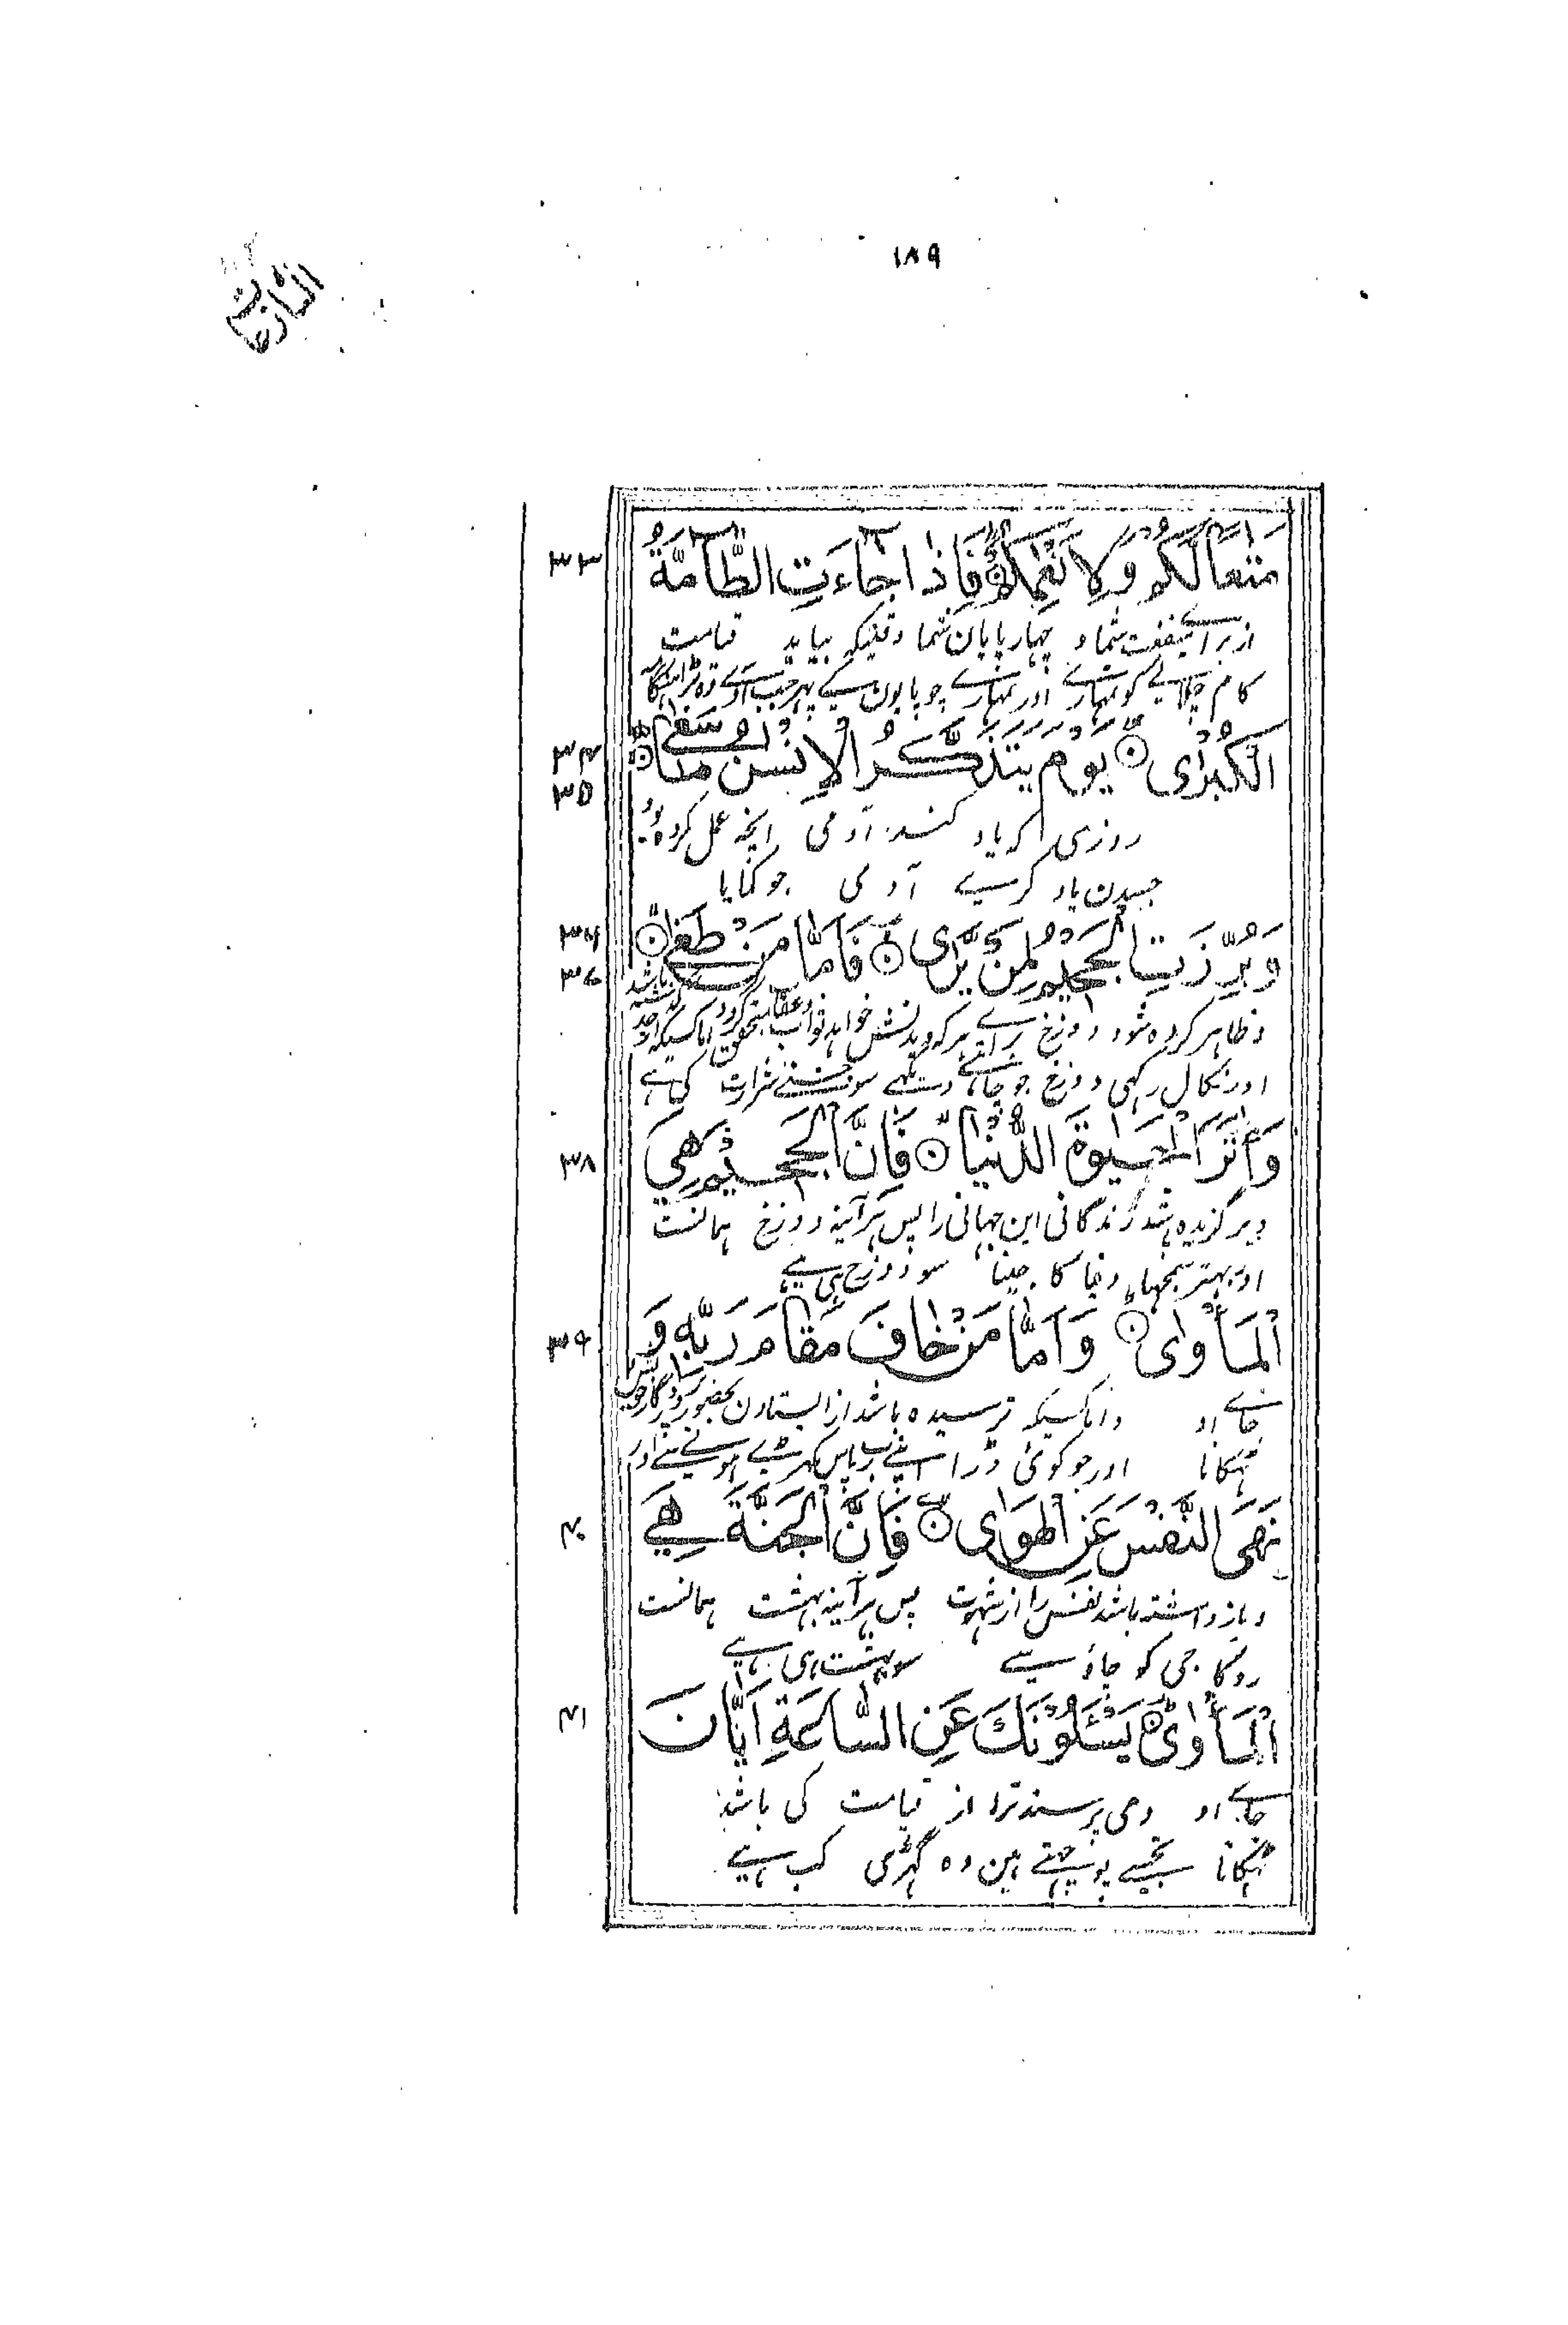 ۱۸۹
النازعات
مَتَاعًا لَّكُمْ وَلِاَنْعَامِكُمْ فَاِذَا جَآءَتِ الطَّآمَّةُ
۳۳
از براے منفعت شما و چهارپایان شما وقتیکه بیاید قیامت
کام چلانے کو تمہارے اور تمہارے چوپایون کے پہر جب آوے وہ بڑا ہنگامہ
الْكُبْرٰى يَوْمَ يَتَذَكَّرُ الْاِنْسٰنُ مَا سَعٰى
۳۴
۳۵
روزی که یاد کند آدمی انچه عمل کرده بود
جسدن یاد کرسے آدمی جو کمایا
وَبُرِّزَتِ الْجَحِيْمُ لِمَنْ يَّرٰى فَاَمَّا مَنْ طَغٰى
۳۶
۳۷
و ظاهر کرده شود دوزخ براے هر که دیدنش خواهد اما کسیکه از حد گذشته باشد
اور نکال رکهی دوزخ جو چاہے دیکهے سو جسنے شرارت کی ہے
وَاٰثَرَ الْحَيٰوةَ الدُّنْيَا فَاِنَّ الْجَحِيْمَ هِيَ
۳۸
و برگزیده باشد زندگانی این جهانی را پس هر آئینه دوزخ همانست
اور بہتر سمجہا دنیا کا جینا سو دوزخ ہی ہے
الْمَاْوٰى وَاَمَّا مَنْ خَافَ مَقَامَ رَبِّهٖ وَ
۳۹
جاے او و اما کسیکه ترسیده باشد از ایستادن بحضور پروردگار خویش
ٹہکانا اور جو کوئی ڈرا اپنے رب پاس کہڑے ہونے سے اور
نَهَى النَّفْسَ عَنِ الْهَوٰى فَاِنَّ الْجَنَّةَ هِيَ
۴۰
و باز داشته باشد نفس را از شهوت پس هر آئینه بهشت همانست
روکا جی کو چاؤ سے سو بہشت ہی ہے
الْمَاْوٰى يَسْئَلُوْنَكَ عَنِ السَّاعَةِ اَيَّانَ
۴۱
جاے او و می پرسند ترا از قیامت کی باشد
ٹہکانا تجہسے پونچہتے ہین وہ گہڑی کب ہے